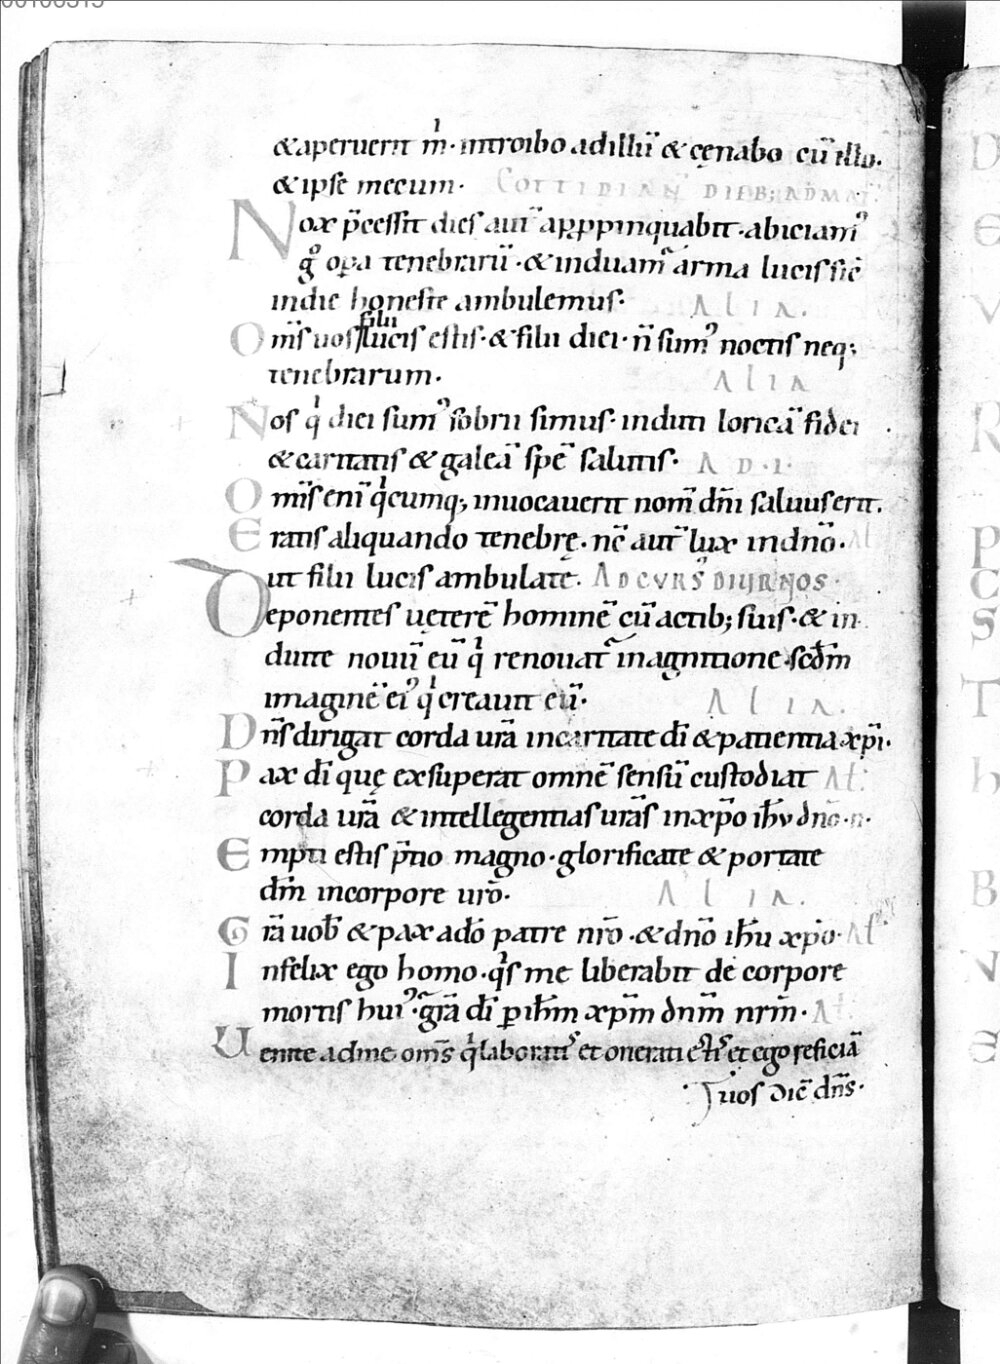 & aperuerit m̄ · introibo ad illū & cęnabo cū illo.
& ipse mecum · COTTIDIAN̄ DIEB; AD MAT̄.
Nox p̄cessit dies aut̄ appropinquabit · abiciam᾽
g̊ opa tenebrarū · & induam᾽ arma lucis sic
in die honeste ambulemus · ALIA.
filii
Om̄s uos lucis estis · & filii diei · n̄ sum᾽ noctis neq;
tenebrarum · ALIA
Nos q̍ diei sum᾽ sobrii simus · induti loricā fidei
& caritatis & galeā spē salutis · AD · I ·
Om̄is eni q̍cumq; inuocauerit nom̄ dn̄i saluus erit.
Eratis aliquando tenebrę. nc̄ aut̄ lux in dn̄o · Al
Ut filii lucis ambulate. AD CURS᾽ DIURNOS ·
Deponentes ueterē hominē cū actib; suis · & in
duite nouū eū q̍ renouat᾽ in agnitione · scd̄m
imaginē ei᾽ q̍ creauit eū · ALIA.
Dn̄s dirigat corda ur̄a in caritate dī & patientia xp̄i ·
Pax dī quę exsuperat omnē sensū custodiat Al̄:
corda ur̄a & intellegentias ur̄as in xp̄o ih̄u dn̄o · n ·
Empti estis p̄tio magno · glorificate & portate
dm̄ in corpore ur̄o · ALIA.
Gr̄a uob̄ & pax a do patre nr̄o · & dn̄o ih̄u xp̄o · Al̄
Infelix ego homo · q̍s me liberabit de corpore
mortis hui᾽ · gr̄a dī p ih̄m xp̄m dnm̄ nrm̄ · Al̄
Uenite ad me om̄s q̍ laborati᾽ et onerati esti᾽ et ego reficiā
uos dic̄ dn̄s ·